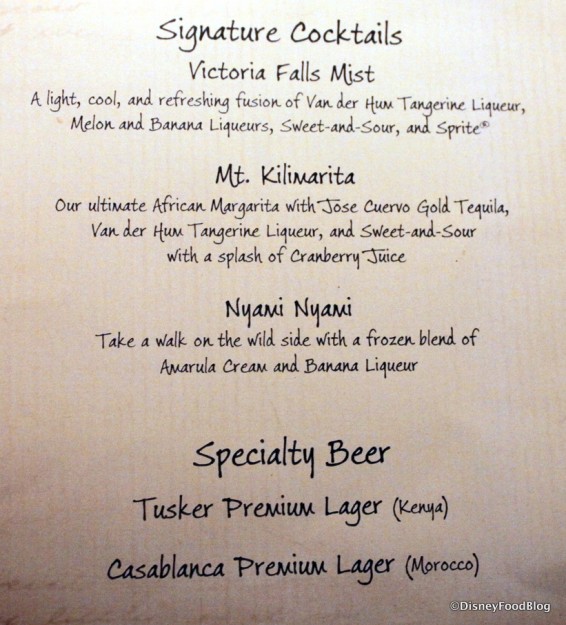 Signature Cocktails
Victoria Falls Mist
A light, cool, and refreshing fusion of Van der Hum Tangerine Liqueur,
Melon and Banana Liqueurs, Sweet-and-Sour, and Sprite®
Mt. Kilimarita
Our ultimate African Margarita with Jose Cuervo Gold Tequila,
Van der Hum Tangerine Liqueur, and Sweet-and-Sour
with a splash of Cranberry Juice
Nyami Nyami
Take a walk on the wild side with a frozen blend of
Amarula Cream and Banana Liqueur
Specialty Beer
Tusker Premium Lager (Kenya)
Casablanca Premium Lager (Morocco)
©DisneyFoodBlog